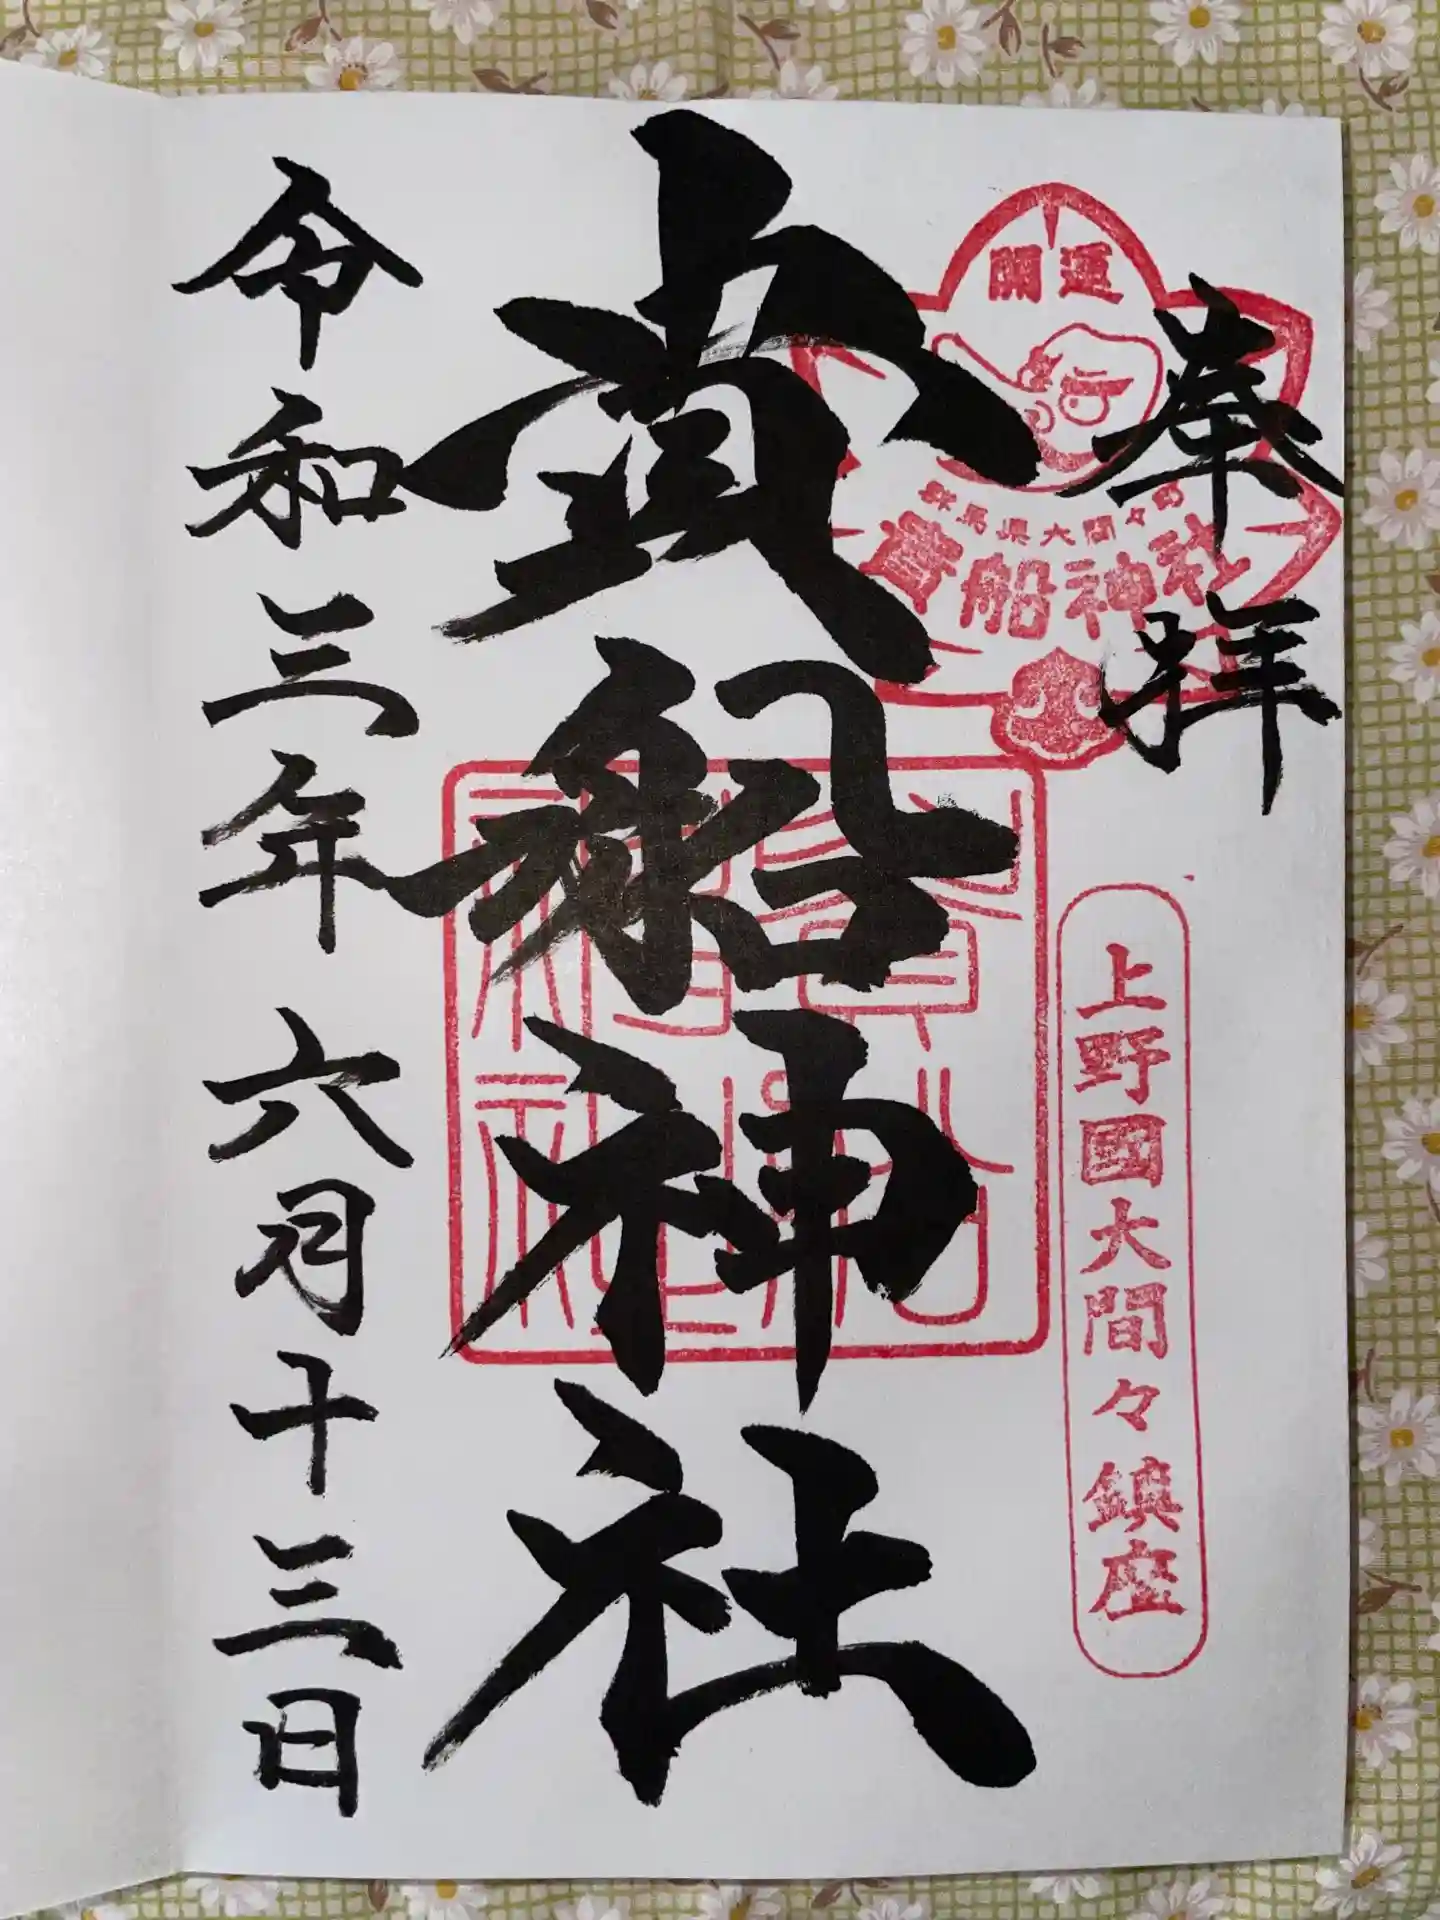 奉拝
開運
群馬県大間々町
貴船神社
上野國大間々鎮座
貴船神社
令和三年六月十三日